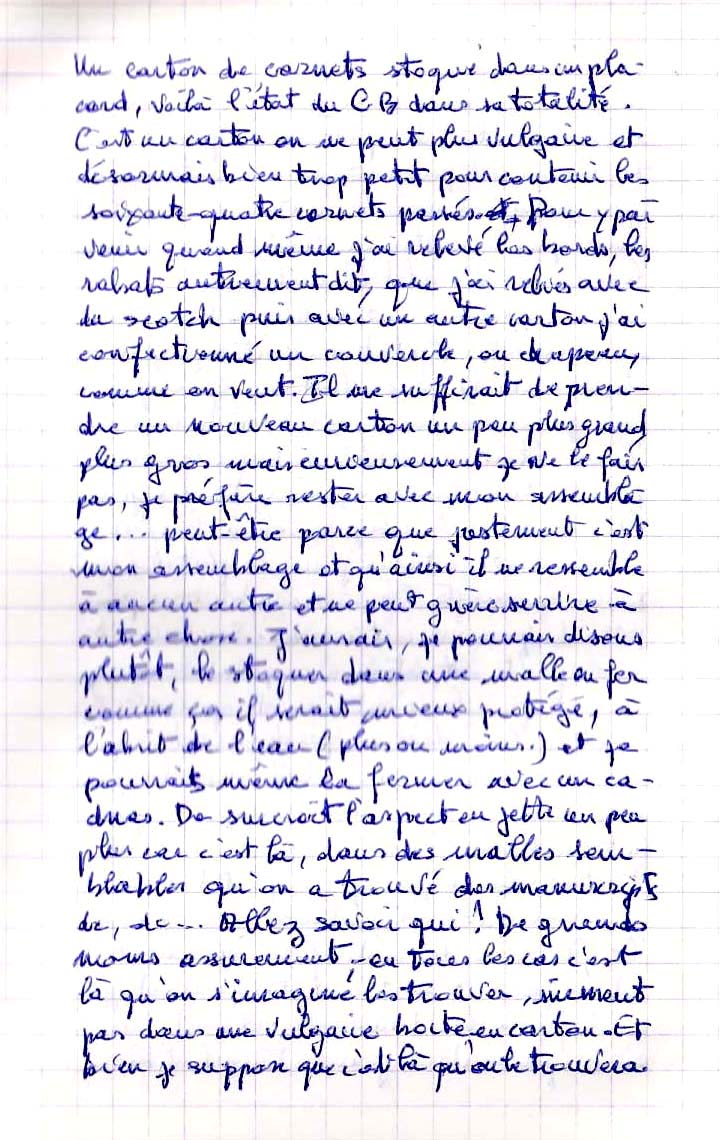 Un carton de carnets stoqué dans un pla-
card, voilà l'état du CB dans sa totalité.
C'est un carton on ne peut plus vulgaire et
désormais bien trop petit pour contenir les
soixante-quatre carnets passés et, Pour y par
venir quand même j'ai relevé les bords, les
rabats autrement dit, que j'ai reliés avec
du scotch puis avec un autre carton j'ai
confectionné un couvercle, ou chapeau,
comme on veut. Il me suffirait de pren-
dre un nouveau carton un peu plus grand
plus gros mais curieusement je ne le fais
pas, je préfère rester avec mon assembla
ge... peut-être parce que justement c'est
mon assemblage et qu'ainsi il ne ressemble
à aucun autre et ne peut guère servire à
autre chose. J'aurais, je pourrais disons
plutôt, le stoquer dans une malle en fer
comme ça il serait mieux protégé, à
l'abrit de l'eau (plus ou moins.) et je
pourrais même la fermer avec un ca-
dnas. De surcroît l'aspect en jette un peu
plus car c'est là, dans des malles sem-
blables qu'on a trouvé des manuscrits
de, de... Allez savoir qui! De grands
noms assurement, en toues les cas c'est
là qu'on s'imagine les trouver, surement
pas dans une vulgaire boite en carton. Et
bien je suppose que c'est là qu'on le trouvera.